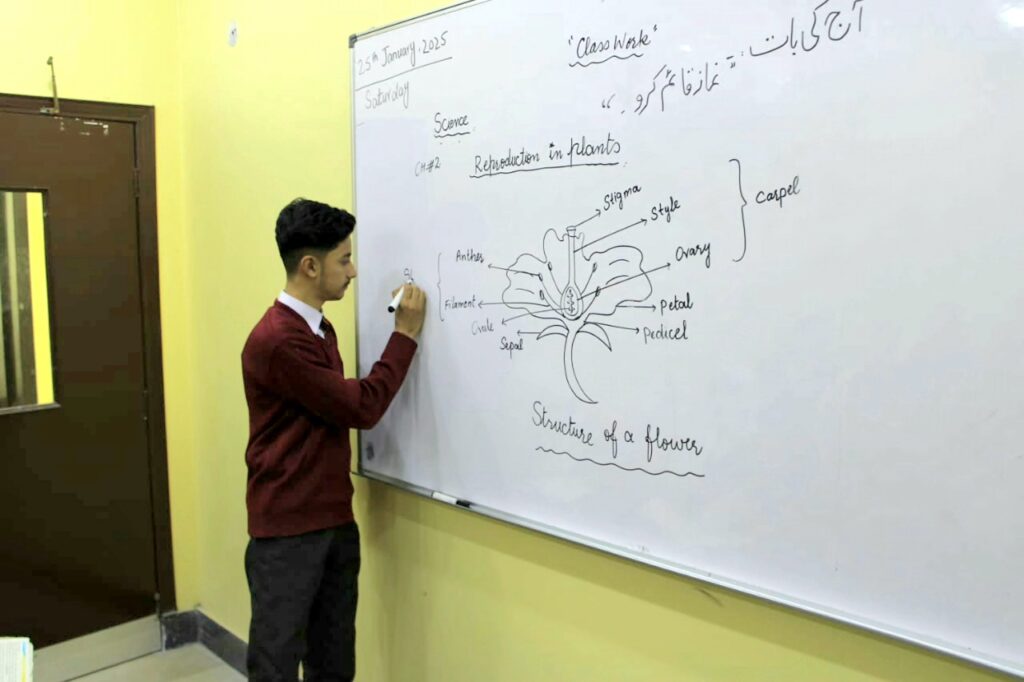 25th January, 2025
Saturday
"Class Work"
آج کی بات: "نماز قائم کرو۔"
Science
CH#2
Reproduction in plants
Stigma
Style
Carpel
Anther
Ovary
Filament
Petal
Ovule
Sepal
Pedicel
St
Structure of a flower